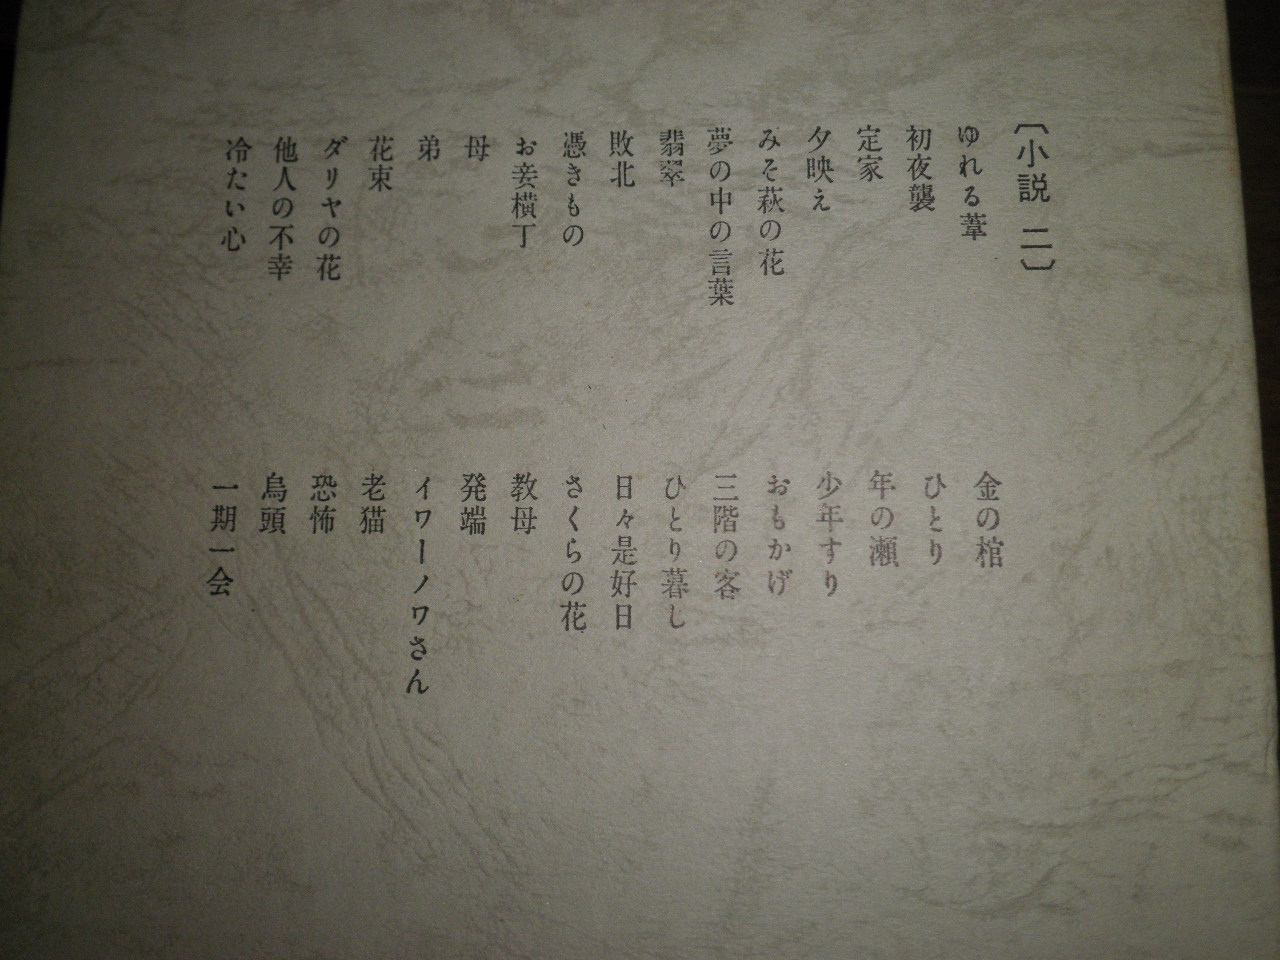 〔小説 二〕
ゆれる葦
初夜襲
定家
夕映え
みそ萩の花
夢の中の言葉
翡翠
敗北
憑きもの
お妾横丁
母
弟
花束
ダリヤの花
他人の不幸
冷たい心
金の棺
ひとり
年の瀬
少年すり
おもかげ
三階の客
ひとり暮し
日々是好日
さくらの花
教母
発端
イワーノワさん
老猫
恐怖
烏頭
一期一会